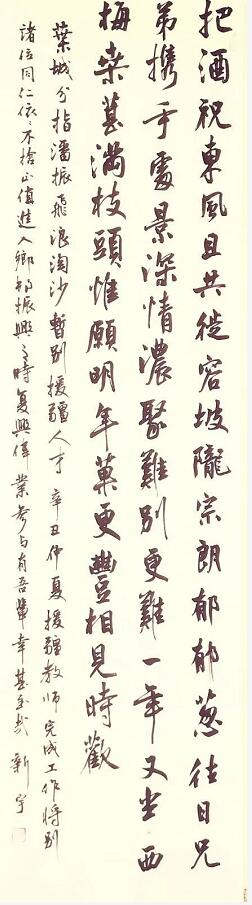 把酒祝東風且共從容坡隴宗朗郁郁葱往日兄
弟携手處景深情濃聚難別更難一年又坐西
梅桑葚滿枝頭惟願明年菓更豐相見時歡
葉城分指潘振飛浪淘沙暫別援疆人才 辛丑仲夏援疆教師完成工作将别
諸位同仁依〻不捨正值進入鄉村振興之時復興偉業参与有吾輩幸甚至哉 新宇